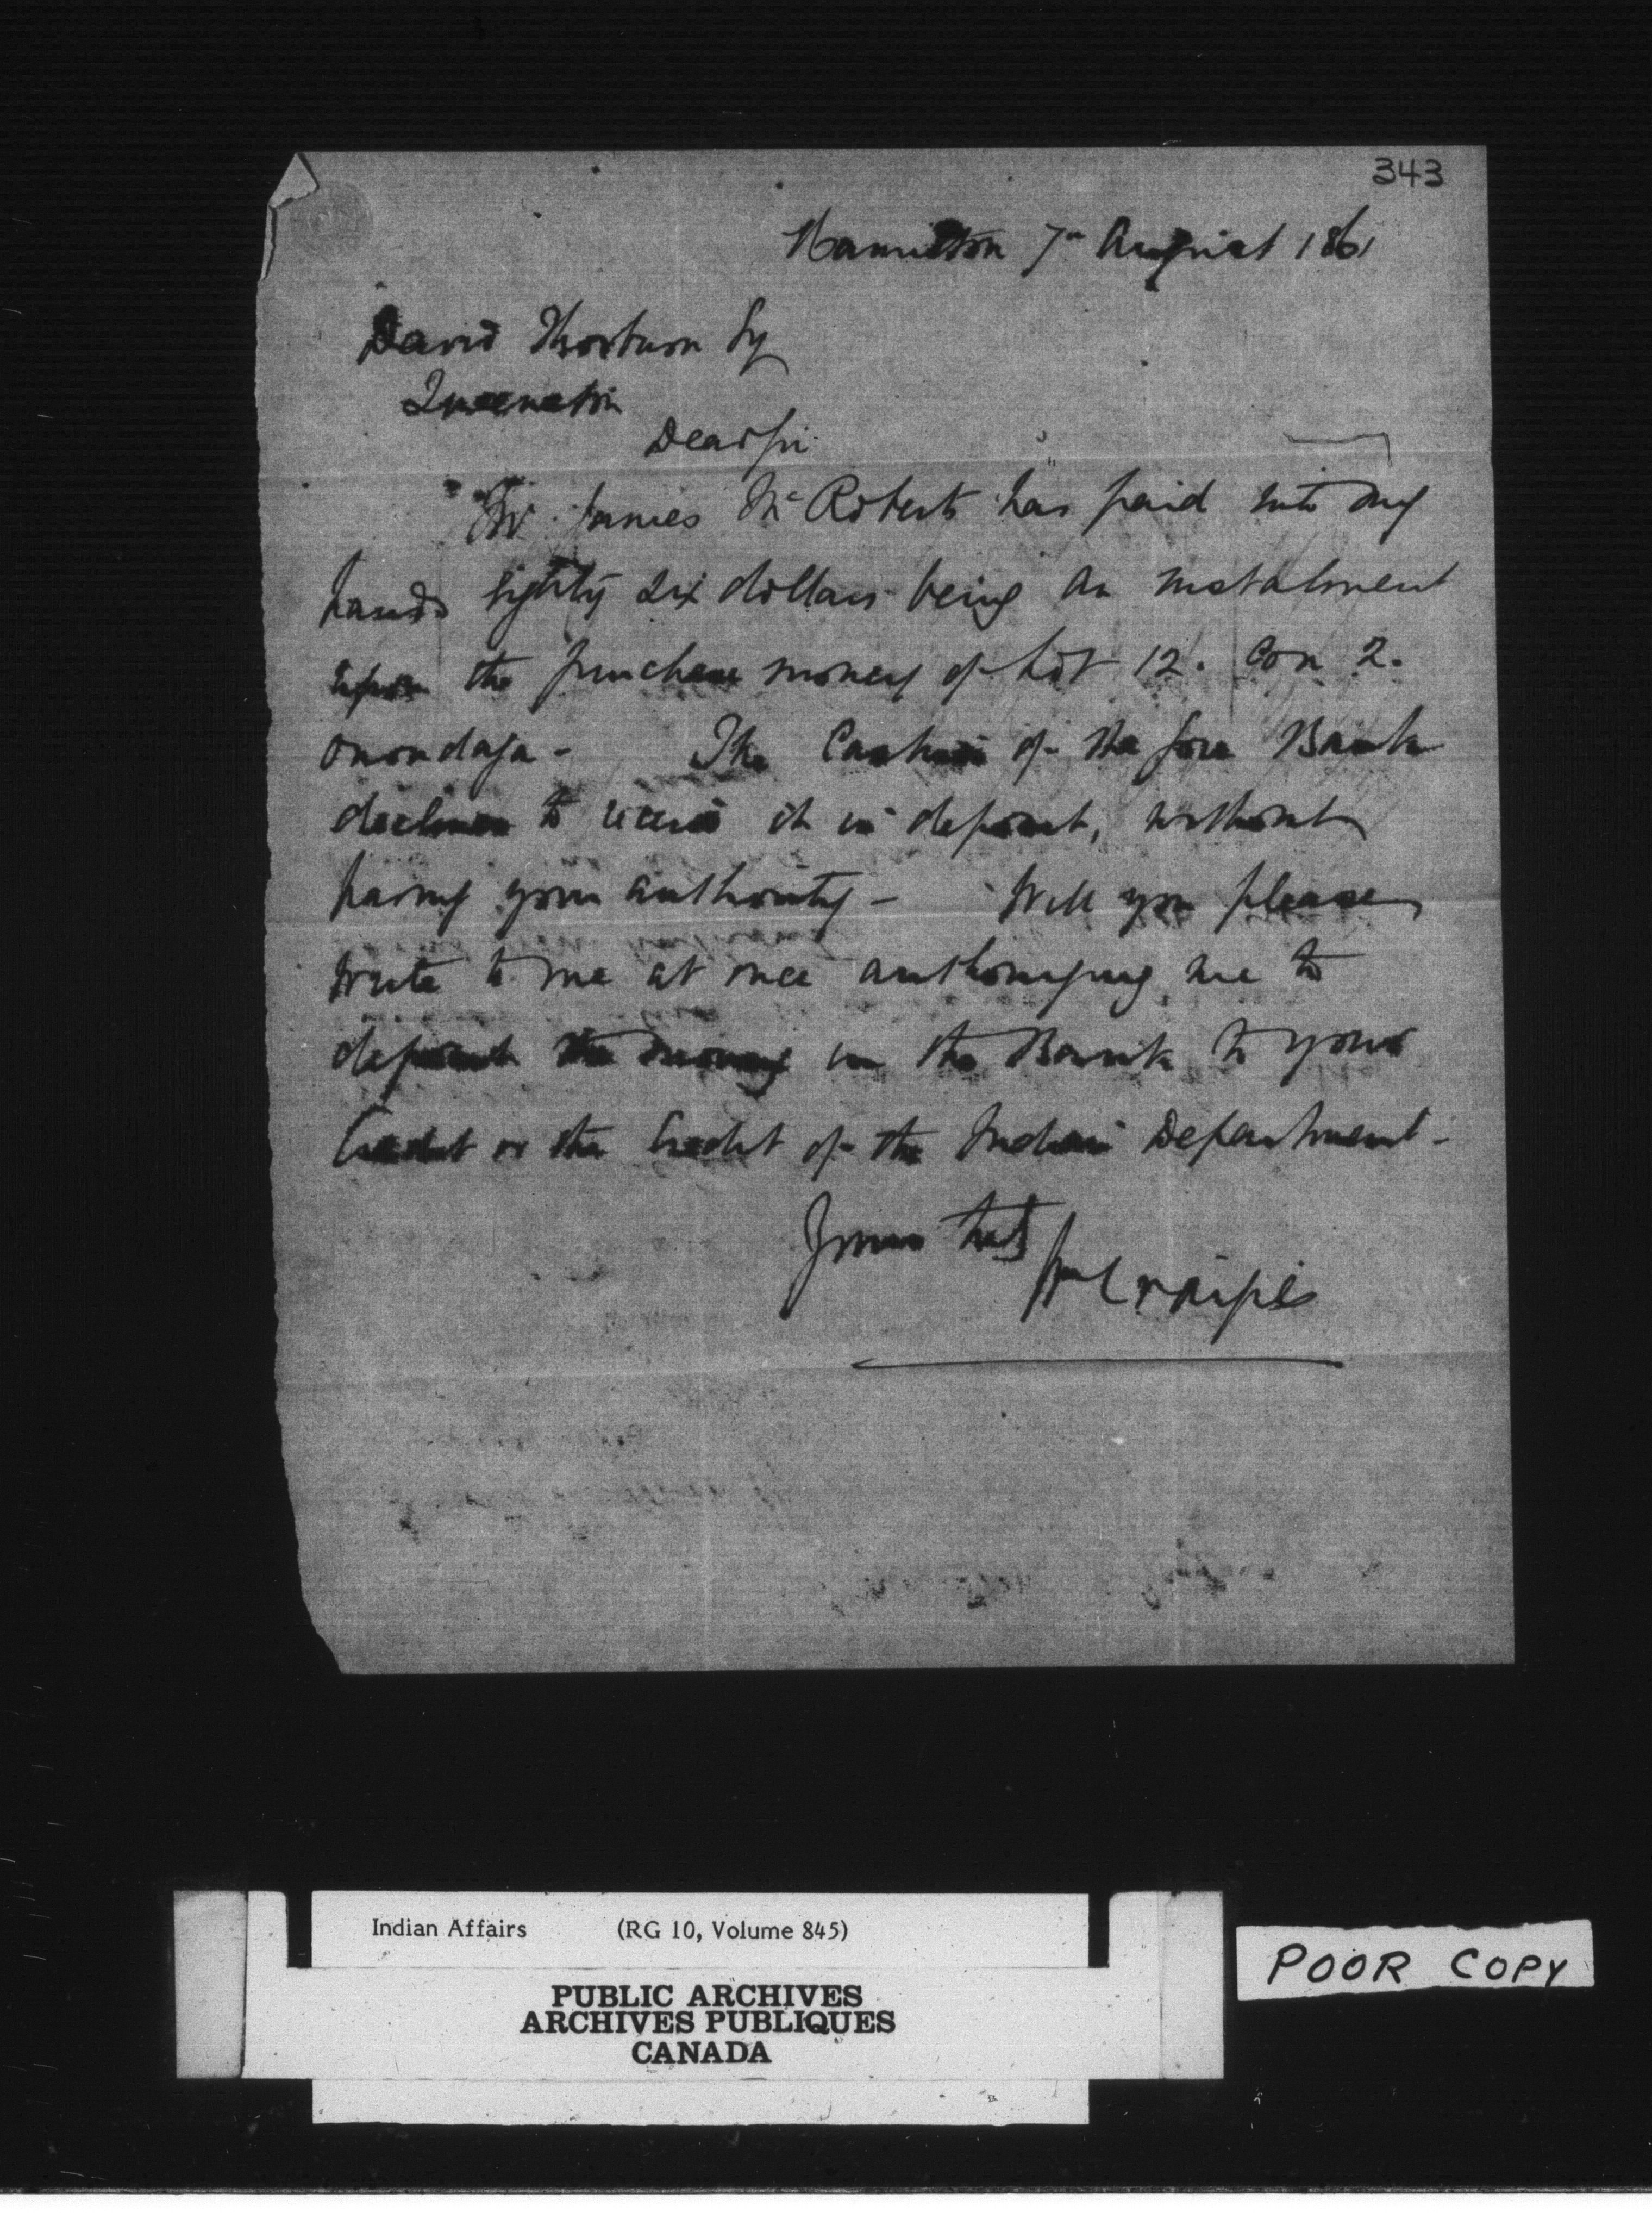 343
Hamilton 7th August 1861
David Thorburn Esq
Queenston
Dear Sir
Mr. James McRoberts has paid into my
hands eighty six dollars being an instalment
upon the purchase money of Lot 12. Con 2.
Onondaga - The Cashier of the Gore Bank
declines to receive it in deposit, without
having your authority - Will you please
write to me at once authorizing me to
deposit the money in the Bank to your
Credit or the Credit of the Indian Department -
Yours truly
Indian Affairs (RG 10, Volume 845)
PUBLIC ARCHIVES
ARCHIVES PUBLIQUES
CANADA
POOR COPY